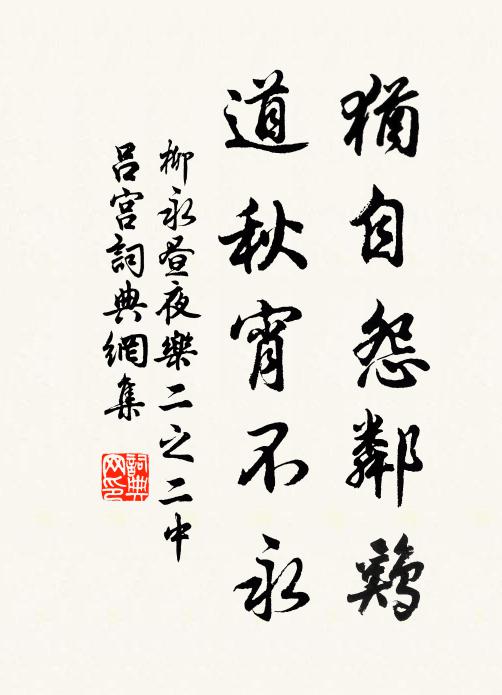 猶自怨鄰鷄
道秋宵不永
柳永晝夜樂二之二中
呂宮詞典網集
詞典网印